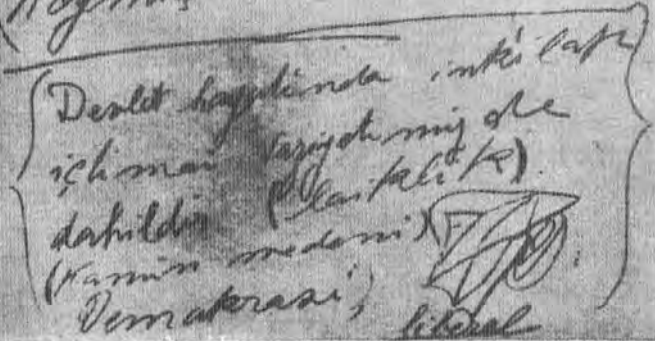 Devlet hayatında inkılap
içtimai vaziyetimiz de
dahildir (laiklik)
(Kanun medeni)
Demokrasi,
liberal